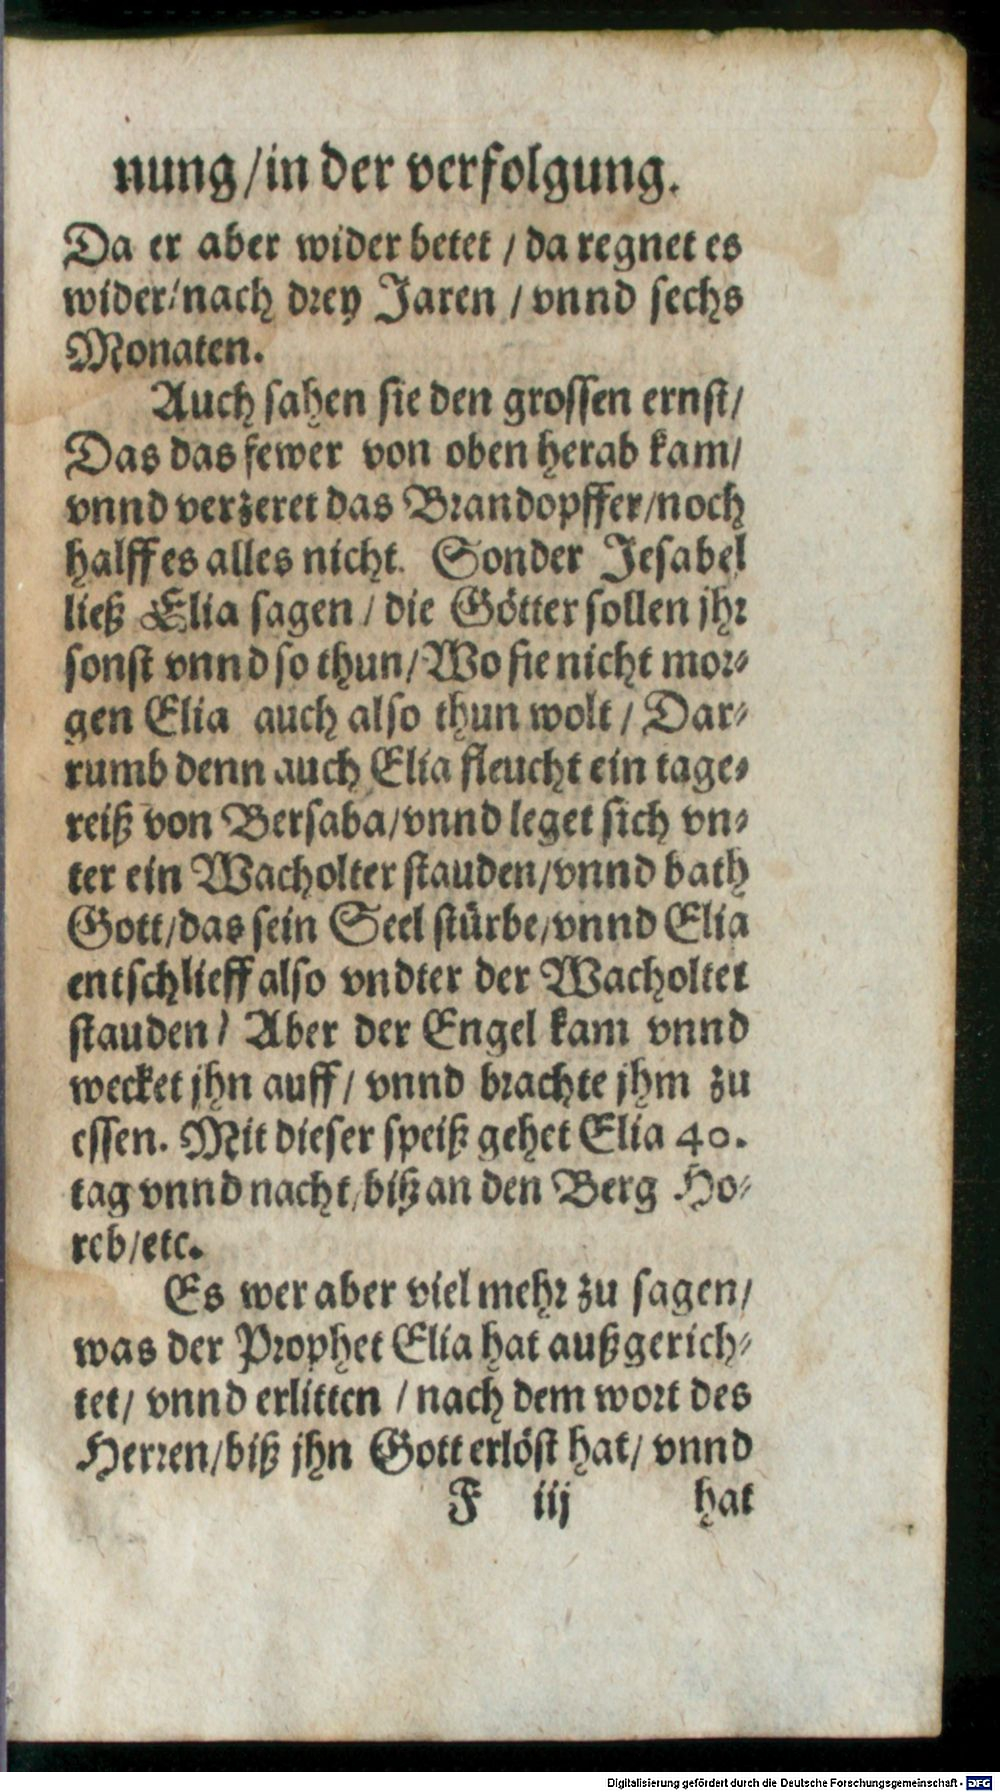 nung/in der verfolgung.
Da er aber wider betet / da regnet es
wider/nach drey Jaren / vnnd sechs
Monaten.
Auch sahen sie den grossen ernst/
Das das fewer von oben herab kam/
vnnd verzeret das Brandopffer/noch
halff es alles nicht. Sonder Jesabel
ließ Elia sagen / die Götter sollen jhr
sonst vnnd so thun/Wo sie nicht mor⸗
gen Elia auch also thun wolt / Dar⸗
rumb denn auch Elia fleucht ein tage⸗
reiß von Bersaba/vnnd leget sich vn⸗
ter ein Wacholter stauden/vnnd bath
Gott/das sein Seel stürbe/vnnd Elia
entschlieff also vndter der Wacholter
stauden / Aber der Engel kam vnnd
wecket jhn auff/ vnnd brachte jhm zu
essen. Mit dieser speiß gehet Elia 40.
tag vnnd nacht/biß an den Berg Ho⸗
reb/etc.
Es wer aber viel mehr zu sagen/
was der Prophet Elia hat außgerich⸗
tet/ vnnd erlitten / nach dem wort des
Herren/biß jhn Gott erlöst hat/ vnnd
F iij hat
Digitalisierung gefördert durch die Deutsche Forschungsgemeinschaft - DFG